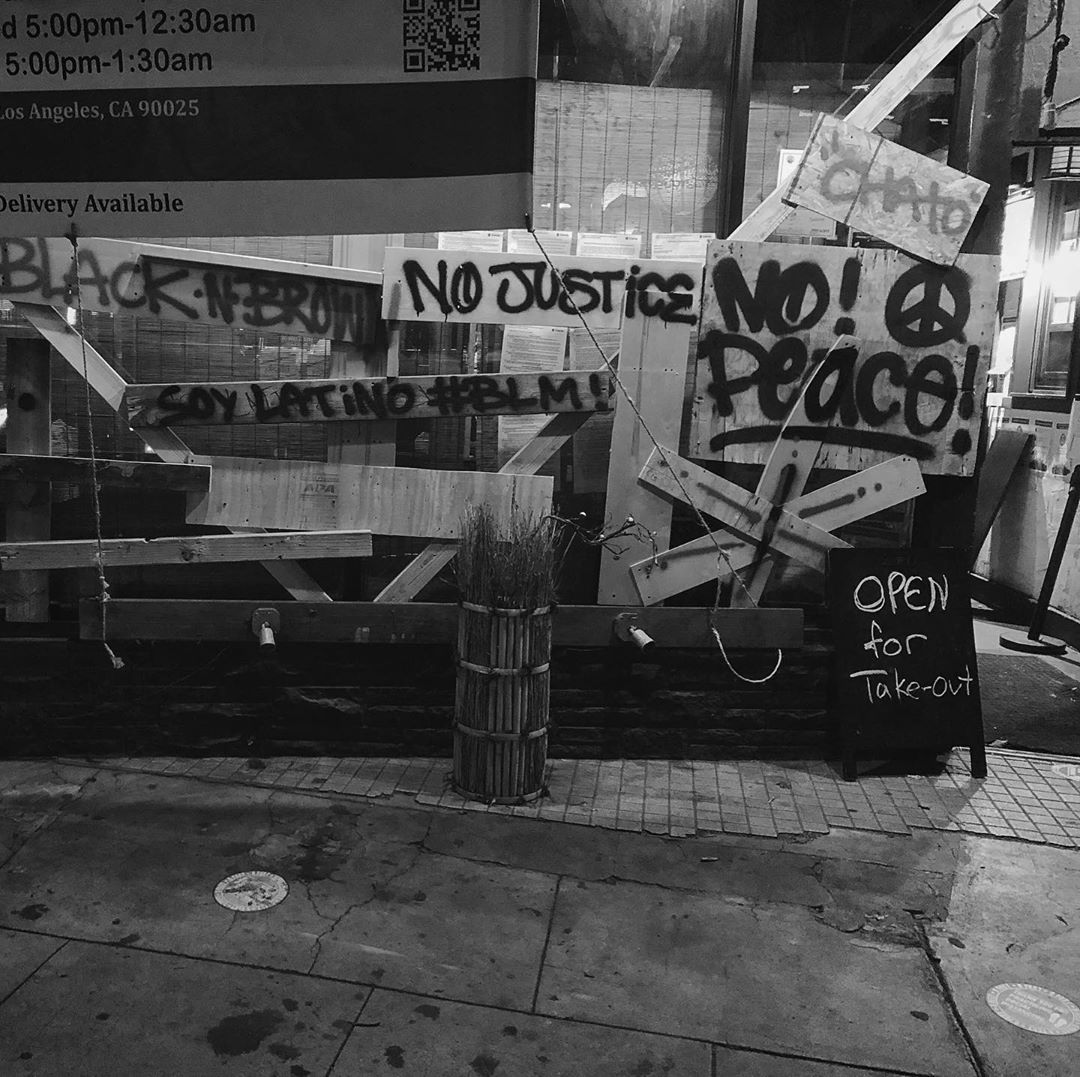 d 5:00pm-12:30am
5:00pm-1:30am
Los Angeles, CA 90025
Delivery Available
"CHATO"
BLACK·N·BROWN
NO JUSTICE
NO!
PEACE!
SOY LATINO #BLM!
APA
OPEN
for
Take-out